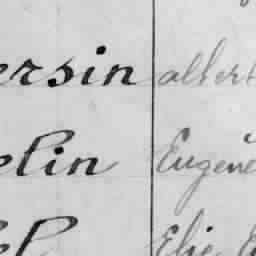 ersin albert
elin Eugene
el Elie